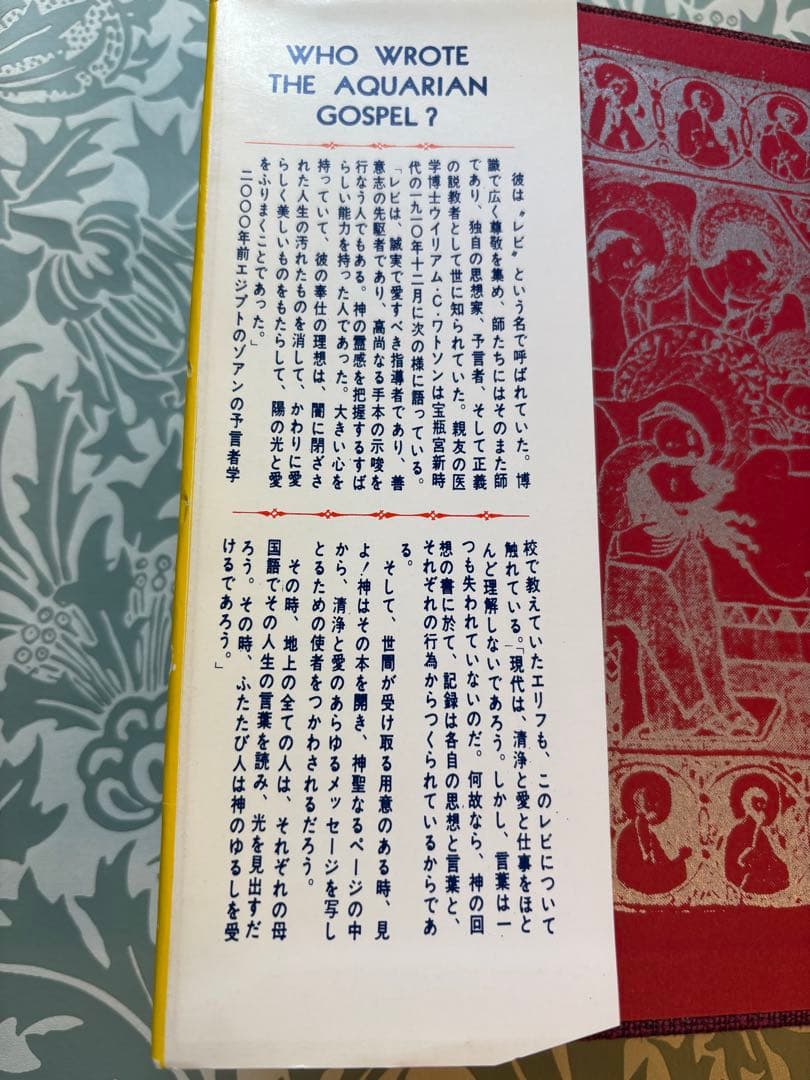 WHO WROTE
THE AQUARIAN
GOSPEL ?
彼は〝レビ〟という名で呼ばれていた。博
識で広く尊敬を集め、師たちにはそのまた師
であり、独自の思想家、予言者、そして正義
の説教者として世に知られていた。親友の医
学博士ウイリアム・C・ワトソンは宝瓶宮新時
代の一九一〇年十二月に次の様に語っている。
「レビは、誠実で愛すべき指導者であり、善
意志の先駆者であり、高尚なる手本の示唆を
行なう人でもある。神の霊感を把握するすば
らしい能力を持った人であった。大きい心を
持っていて、彼の奉仕の理想は、闇に閉ざさ
れた人生の汚れたものを消して、かわりに愛
らしく美しいものをもたらして、陽の光と愛
をふりまくことであった。」
二〇〇〇年前エジプトのゾアンの予言者学
校で教えていたエリフも、このレビについて
触れている。「現代は、清浄と愛と仕事をほと
んど理解しないであろう。しかし、言葉は一
つも失われていないのだ。何故なら、神の回
想の書に於て、記録は各自の思想と言葉と、
それぞれの行為からつくられているからであ
る。
そして、世間が受け取る用意のある時、見
よ！神はその本を開き、神聖なるページの中
から、清浄と愛のあらゆるメッセージを写し
とるための使者をつかわされるだろう。
その時、地上の全ての人は、それぞれの母
国語でその人生の言葉を読み、光を見出すだ
ろう。その時、ふたたび人は神のゆるしを受
けるであろう。」